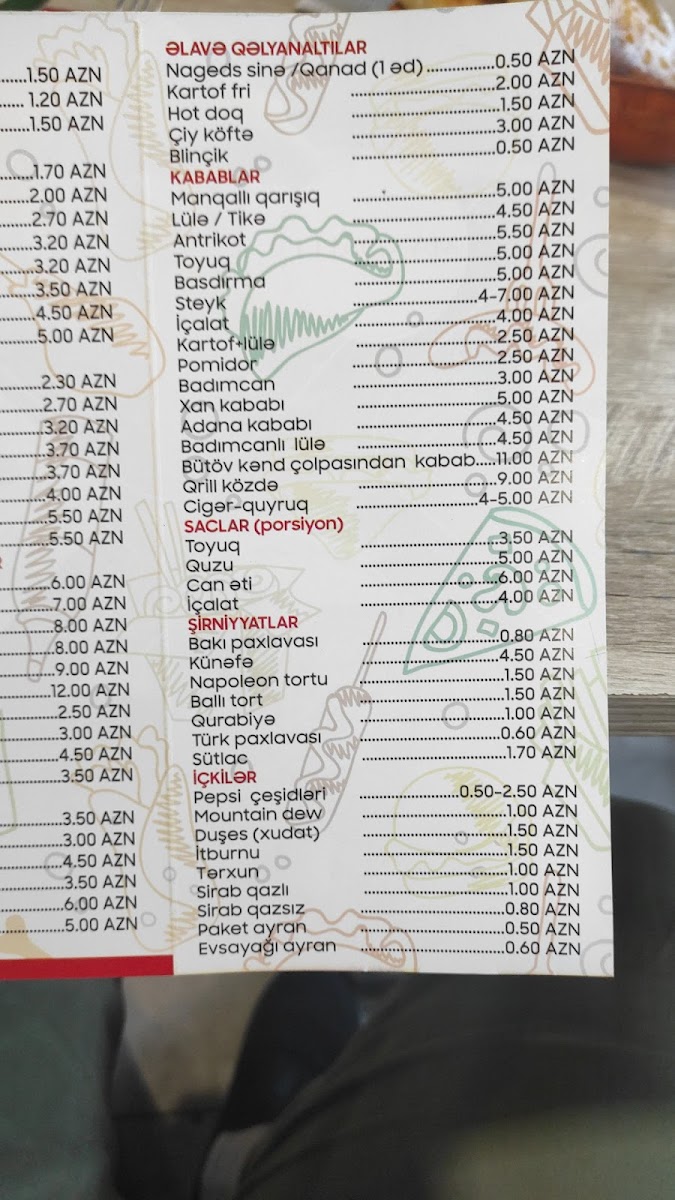 1.50 AZN
1.20 AZN
1.50 AZN
1.70 AZN
2.00 AZN
2.70 AZN
3.20 AZN
3.20 AZN
3.50 AZN
4.50 AZN
5.00 AZN
2.30 AZN
2.70 AZN
3.20 AZN
3.70 AZN
3.70 AZN
4.00 AZN
5.50 AZN
5.50 AZN
6.00 AZN
7.00 AZN
8.00 AZN
8.00 AZN
9.00 AZN
12.00 AZN
2.50 AZN
3.00 AZN
4.50 AZN
3.50 AZN
3.50 AZN
3.00 AZN
4.50 AZN
3.50 AZN
6.00 AZN
5.00 AZN
ƏLAVƏ QƏLYANALTILAR
Nageds sinə /Qanad (1 əd)...............0.50 AZN
Kartof fri ...............2.00 AZN
Hot doq ...............1.50 AZN
Çiy köftə ...............3.00 AZN
Blinçik ...............0.50 AZN
KABABLAR
Manqallı qarışıq ...............5.00 AZN
Lülə / Tikə ...............4.50 AZN
Antrikot ...............5.50 AZN
Toyuq ...............5.00 AZN
Basdırma ...............5.00 AZN
Steyk ...............4-7.00 AZN
İçalat ...............4.00 AZN
Kartof+lülə ...............2.50 AZN
Pomidor ...............2.50 AZN
Badımcan ...............3.00 AZN
Xan kababı ...............5.00 AZN
Adana kababı ...............4.50 AZN
Badımcanlı lülə ...............4.50 AZN
Bütöv kənd çolpasından kabab.....11.00 AZN
Qrill közdə ...............9.00 AZN
Cigər-quyruq ...............4-5.00 AZN
SACLAR (porsiyon)
Toyuq ...............3.50 AZN
Quzu ...............5.00 AZN
Can əti ...............6.00 AZN
İçalat ...............4.00 AZN
ŞİRNİYYATLAR
Bakı paxlavası ...............0.80 AZN
Künəfə ...............4.50 AZN
Napoleon tortu ...............1.50 AZN
Ballı tort ...............1.50 AZN
Qurabiyə ...............1.00 AZN
Türk paxlavası ...............0.60 AZN
Sütlac ...............1.70 AZN
İÇKİLƏR
Pepsi çeşidləri ...............0.50-2.50 AZN
Mountain dew ...............1.00 AZN
Duşes (xudat) ...............1.50 AZN
İtburnu ...............1.50 AZN
Tərxun ...............1.00 AZN
Sirab qazlı ...............1.00 AZN
Sirab qazsız ...............0.80 AZN
Paket ayran ...............0.50 AZN
Evsayağı ayran ...............0.60 AZN